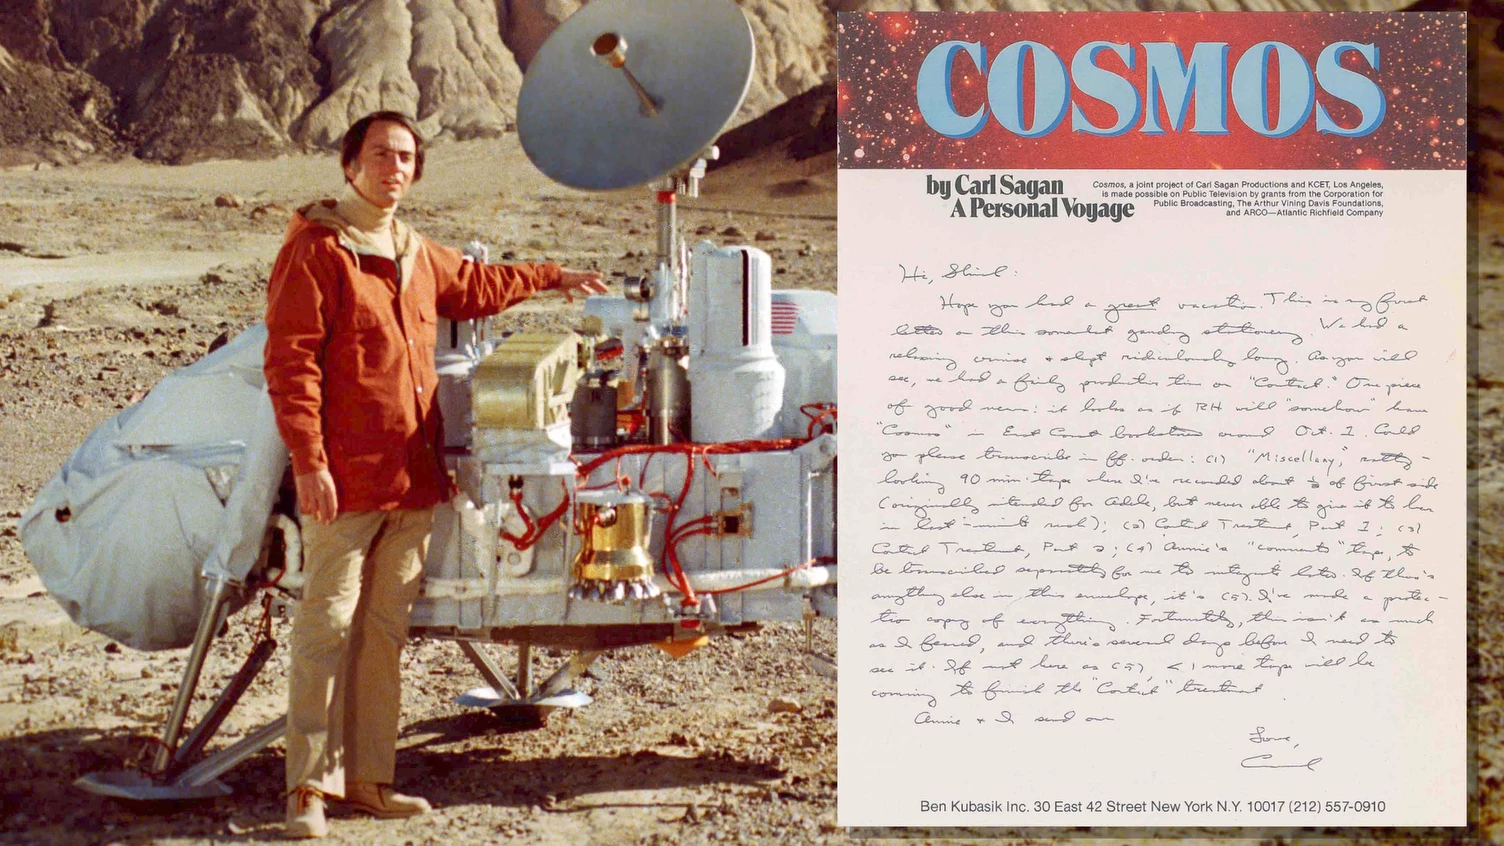 COSMOS
by Carl Sagan
A Personal Voyage
Cosmos, a joint project of Carl Sagan Productions and KCET, Los Angeles,
is made possible on Public Television by grants from the Corporation for
Public Broadcasting, The Arthur Vining Davis Foundations,
and ARCO—Atlantic Richfield Company
Hi, Shirl:
Hope you had a great vacation. This is my first
letter on this somewhat gaudy stationery. We had a
relaxing cruise + slept ridiculously long. As you will
see, we had a fairly productive time on "Contact." One piece
of good news: it looks as if RH will "somehow" have
"Cosmos" in East Coast bookstores around Oct. 1. Could
you please transcribe in ff. order: (1) "Miscellany," ratty-
looking 90 min. tape where I've recorded about ½ of first side
(originally intended for Adele, but never able to give it to her
in last-minute rush); (2) Contact Treatment, Part 1; (3)
Contact Treatment, Part 2; (4) Annie's "comments" tape, to
be transcribed separately for me to integrate later. If there's
anything else in this envelope, it's (5). I've made a protec-
tive copy of everything. Fortunately, this isn't as much
as I feared, and there's several days before I need to
see it. If not here as (5), <1 more tape will be
coming to finish the "Contact" treatment.
Annie + I send our
Love,
Carl
Ben Kubasik Inc. 30 East 42 Street New York N.Y. 10017 (212) 557-0910